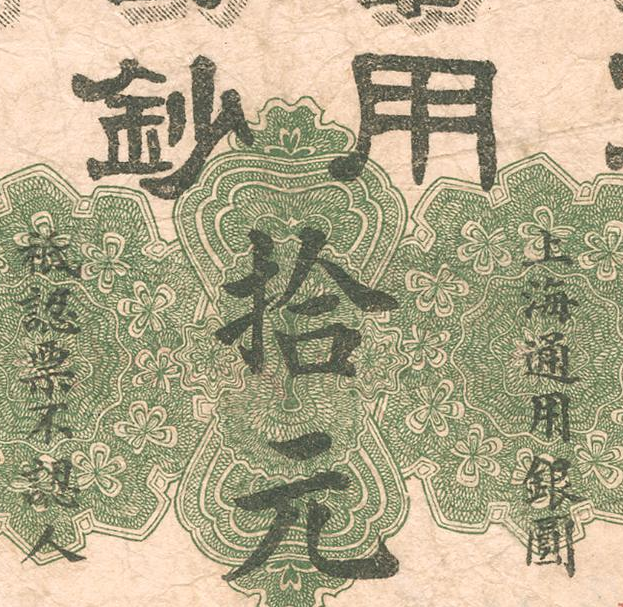 用鈔
上海通用銀圓
拾元
祗認票不認人